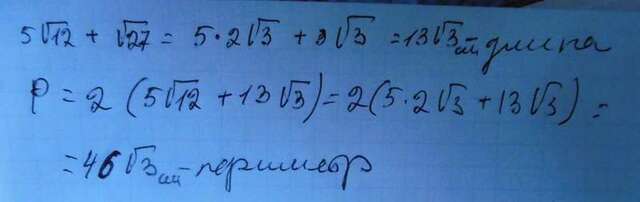 5√12 + √27 = 5·2√3 + 3√3 = 13√3 см - длина
P = 2 (5√12 + 13√3) = 2(5·2√3 + 13√3) =
= 46√3 см - периметр